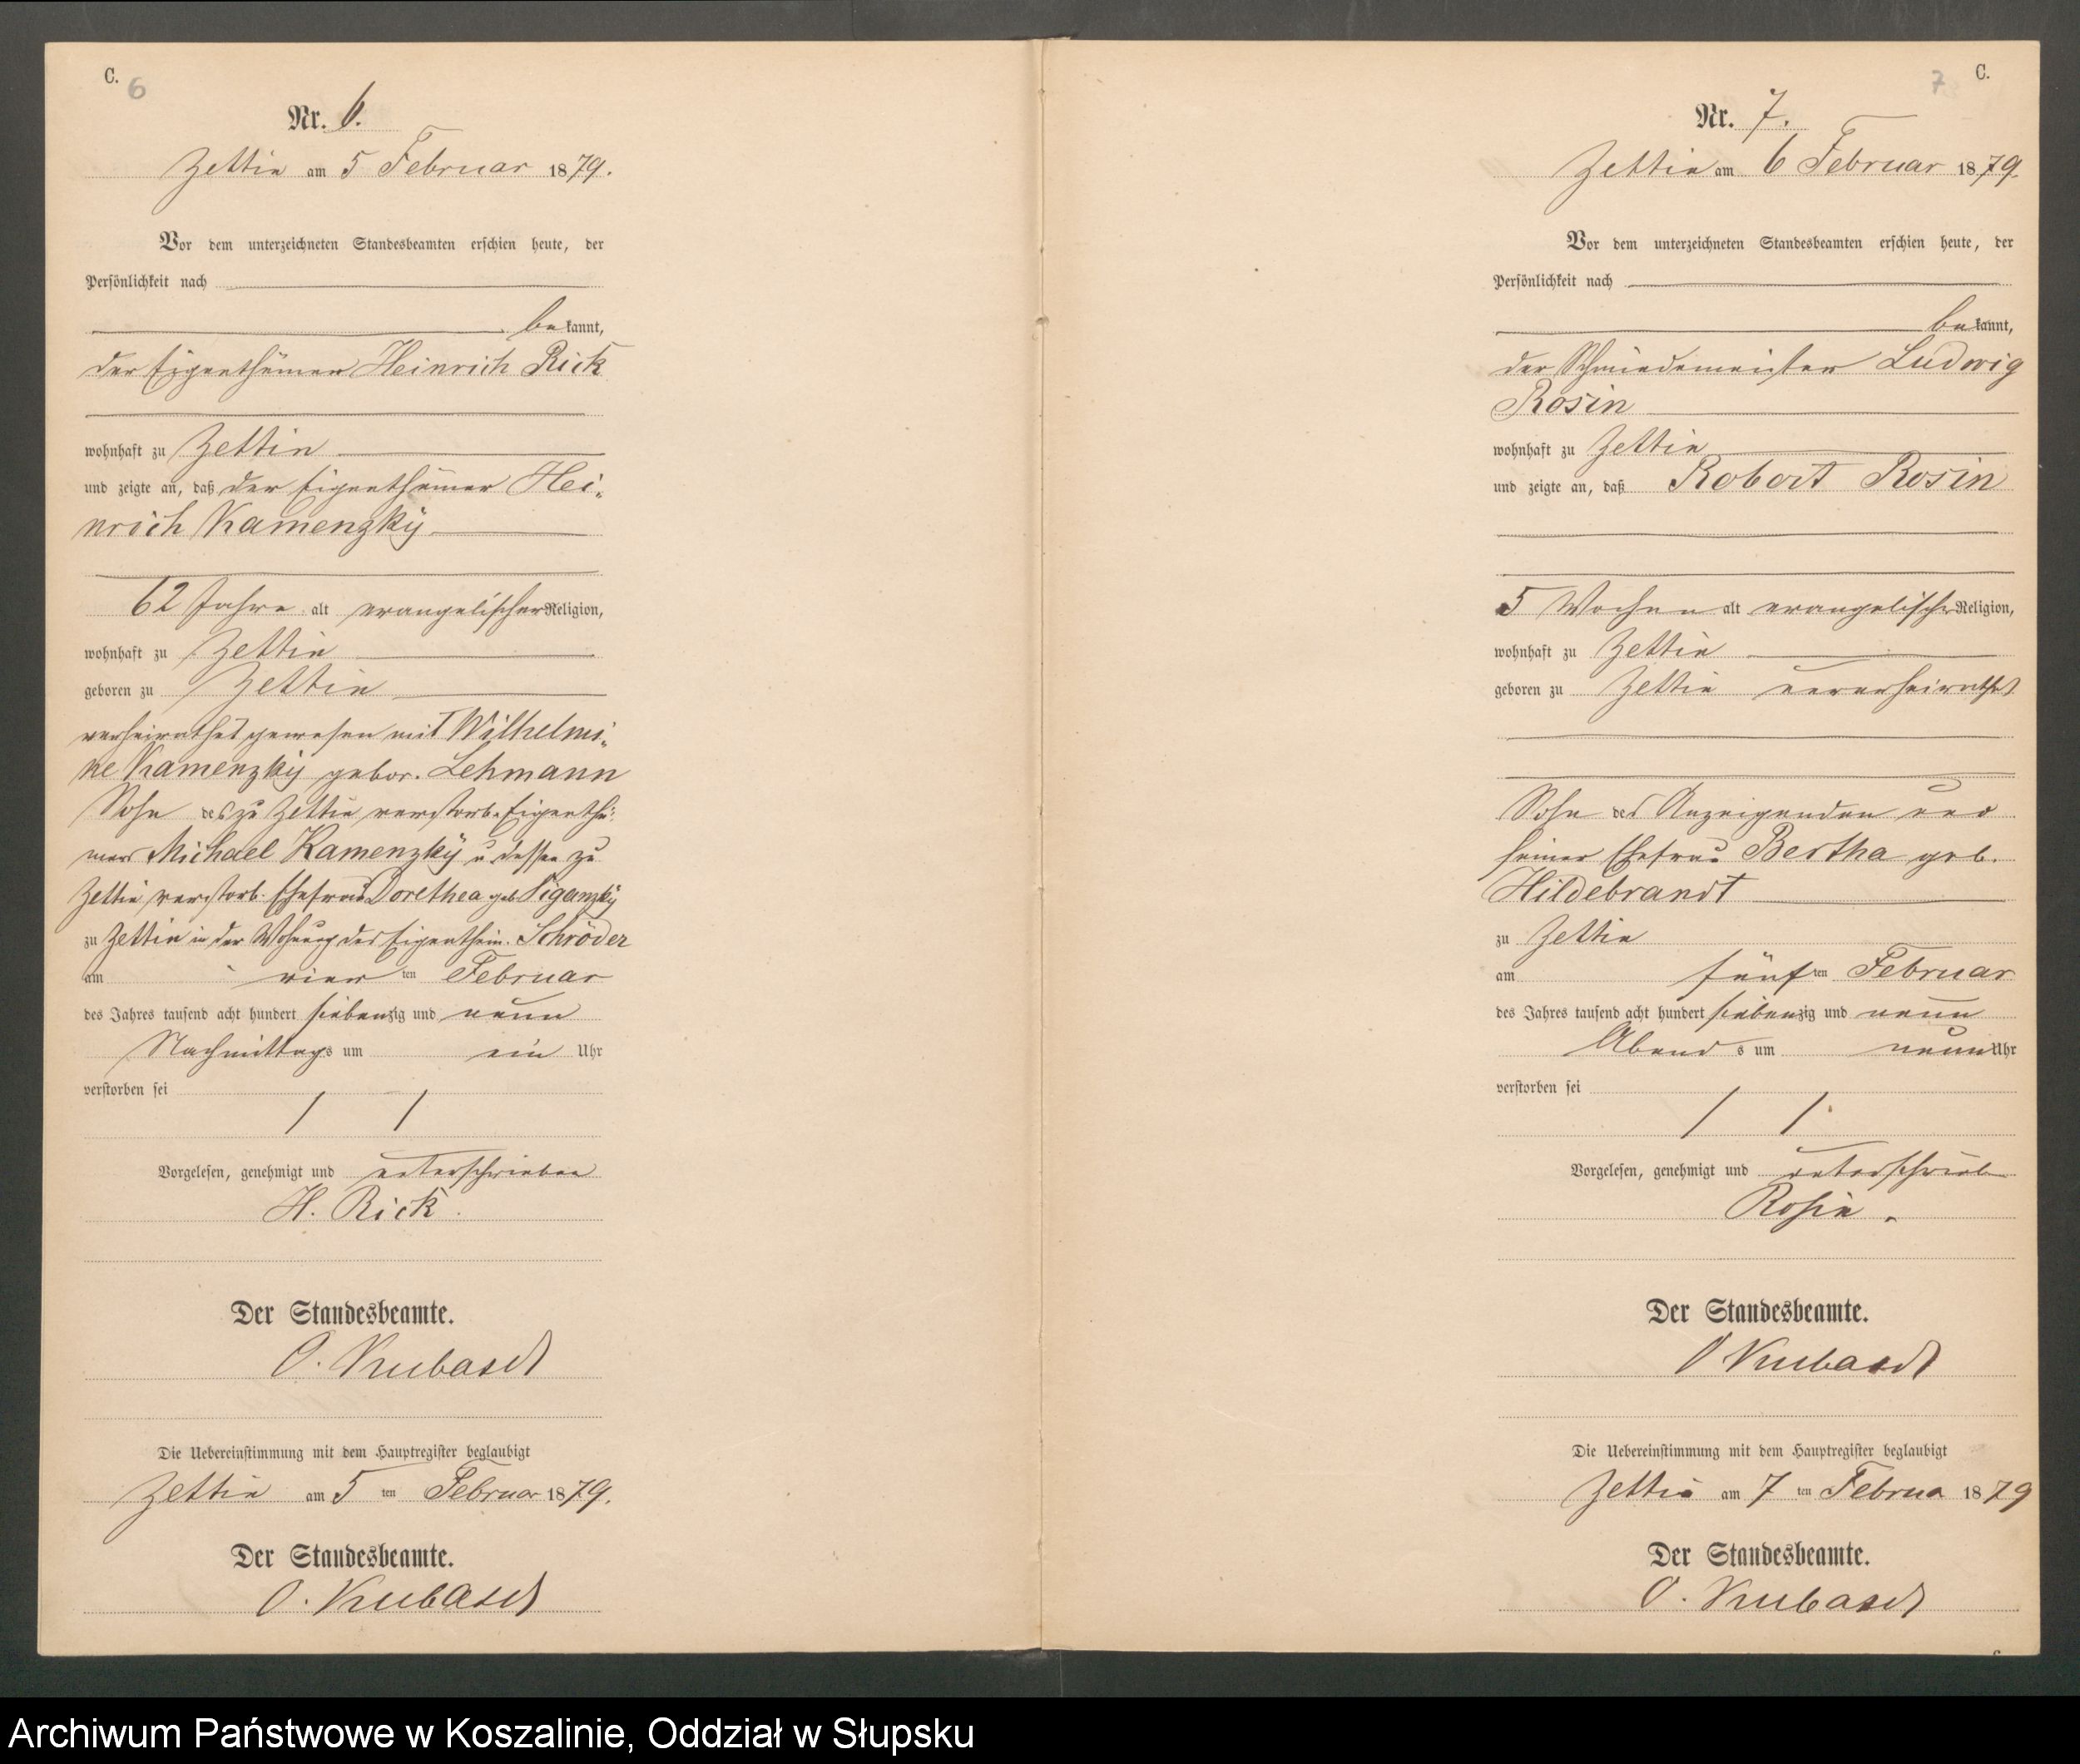 C.
6
Nr. 6.
Zettin am 5 Februar 1879.
Vor dem unterzeichneten Standesbeamten erschien heute, der
Persönlichkeit nach
bekannt,
der Eigenthümer Heinrich Rick
wohnhaft zu Zettin
und zeigte an, daß der Eigenthümer Hei„
nrich Kamenzky
62 Jahre alt evangelischer Religion,
wohnhaft zu Zettin
geboren zu Zettin
verheirathet gewesen mit Wilhelmi„
ne Kamenzky gebor. Lehmann
Sohn des zu Zettin verstorb. Eigenthü„
mers Michael Kamenzky u. dessen zu
Zettin verstorb. Ehefrau Dorethea geb Siganzky
zu Zettin in der Wohnung des Eigenthüm. Schröder
am vierten Februar
des Jahres tausend acht hundert siebenzig und neun
Nachmittags um ein Uhr
verstorben sei
Vorgelesen, genehmigt und unterschrieben
H. Rick.
Der Standesbeamte.
O. Kubasch
Die Uebereinstimmung mit dem Hauptregister beglaubigt
Zettin am 5 ten Februar 1879.
Der Standesbeamte.
O. Kubasch
7
C.
Nr. 7.
Zettin am 6 Februar 1879.
Vor dem unterzeichneten Standesbeamten erschien heute, der
Persönlichkeit nach
bekannt,
der Schmiedemeister Ludwig
Rosin
wohnhaft zu Zettin
und zeigte an, daß Robert Rosin
5 Wochen alt evangelischer Religion,
wohnhaft zu Zettin
geboren zu Zettin unverheirathet
Sohn des Anzeigenden und
seiner Ehefrau Bertha geb.
Hildebrandt
zu Zettin
am fünften Februar
des Jahres tausend acht hundert siebenzig und neun
Abends um neun Uhr
verstorben sei
Vorgelesen, genehmigt und unterschrieb
Rosin.
Der Standesbeamte.
O Kubasch
Die Uebereinstimmung mit dem Hauptregister beglaubigt
Zettin am 7 ten Februa 1879
Der Standesbeamte.
O. Kubasch
Archiwum Państwowe w Koszalinie, Oddział w Słupsku